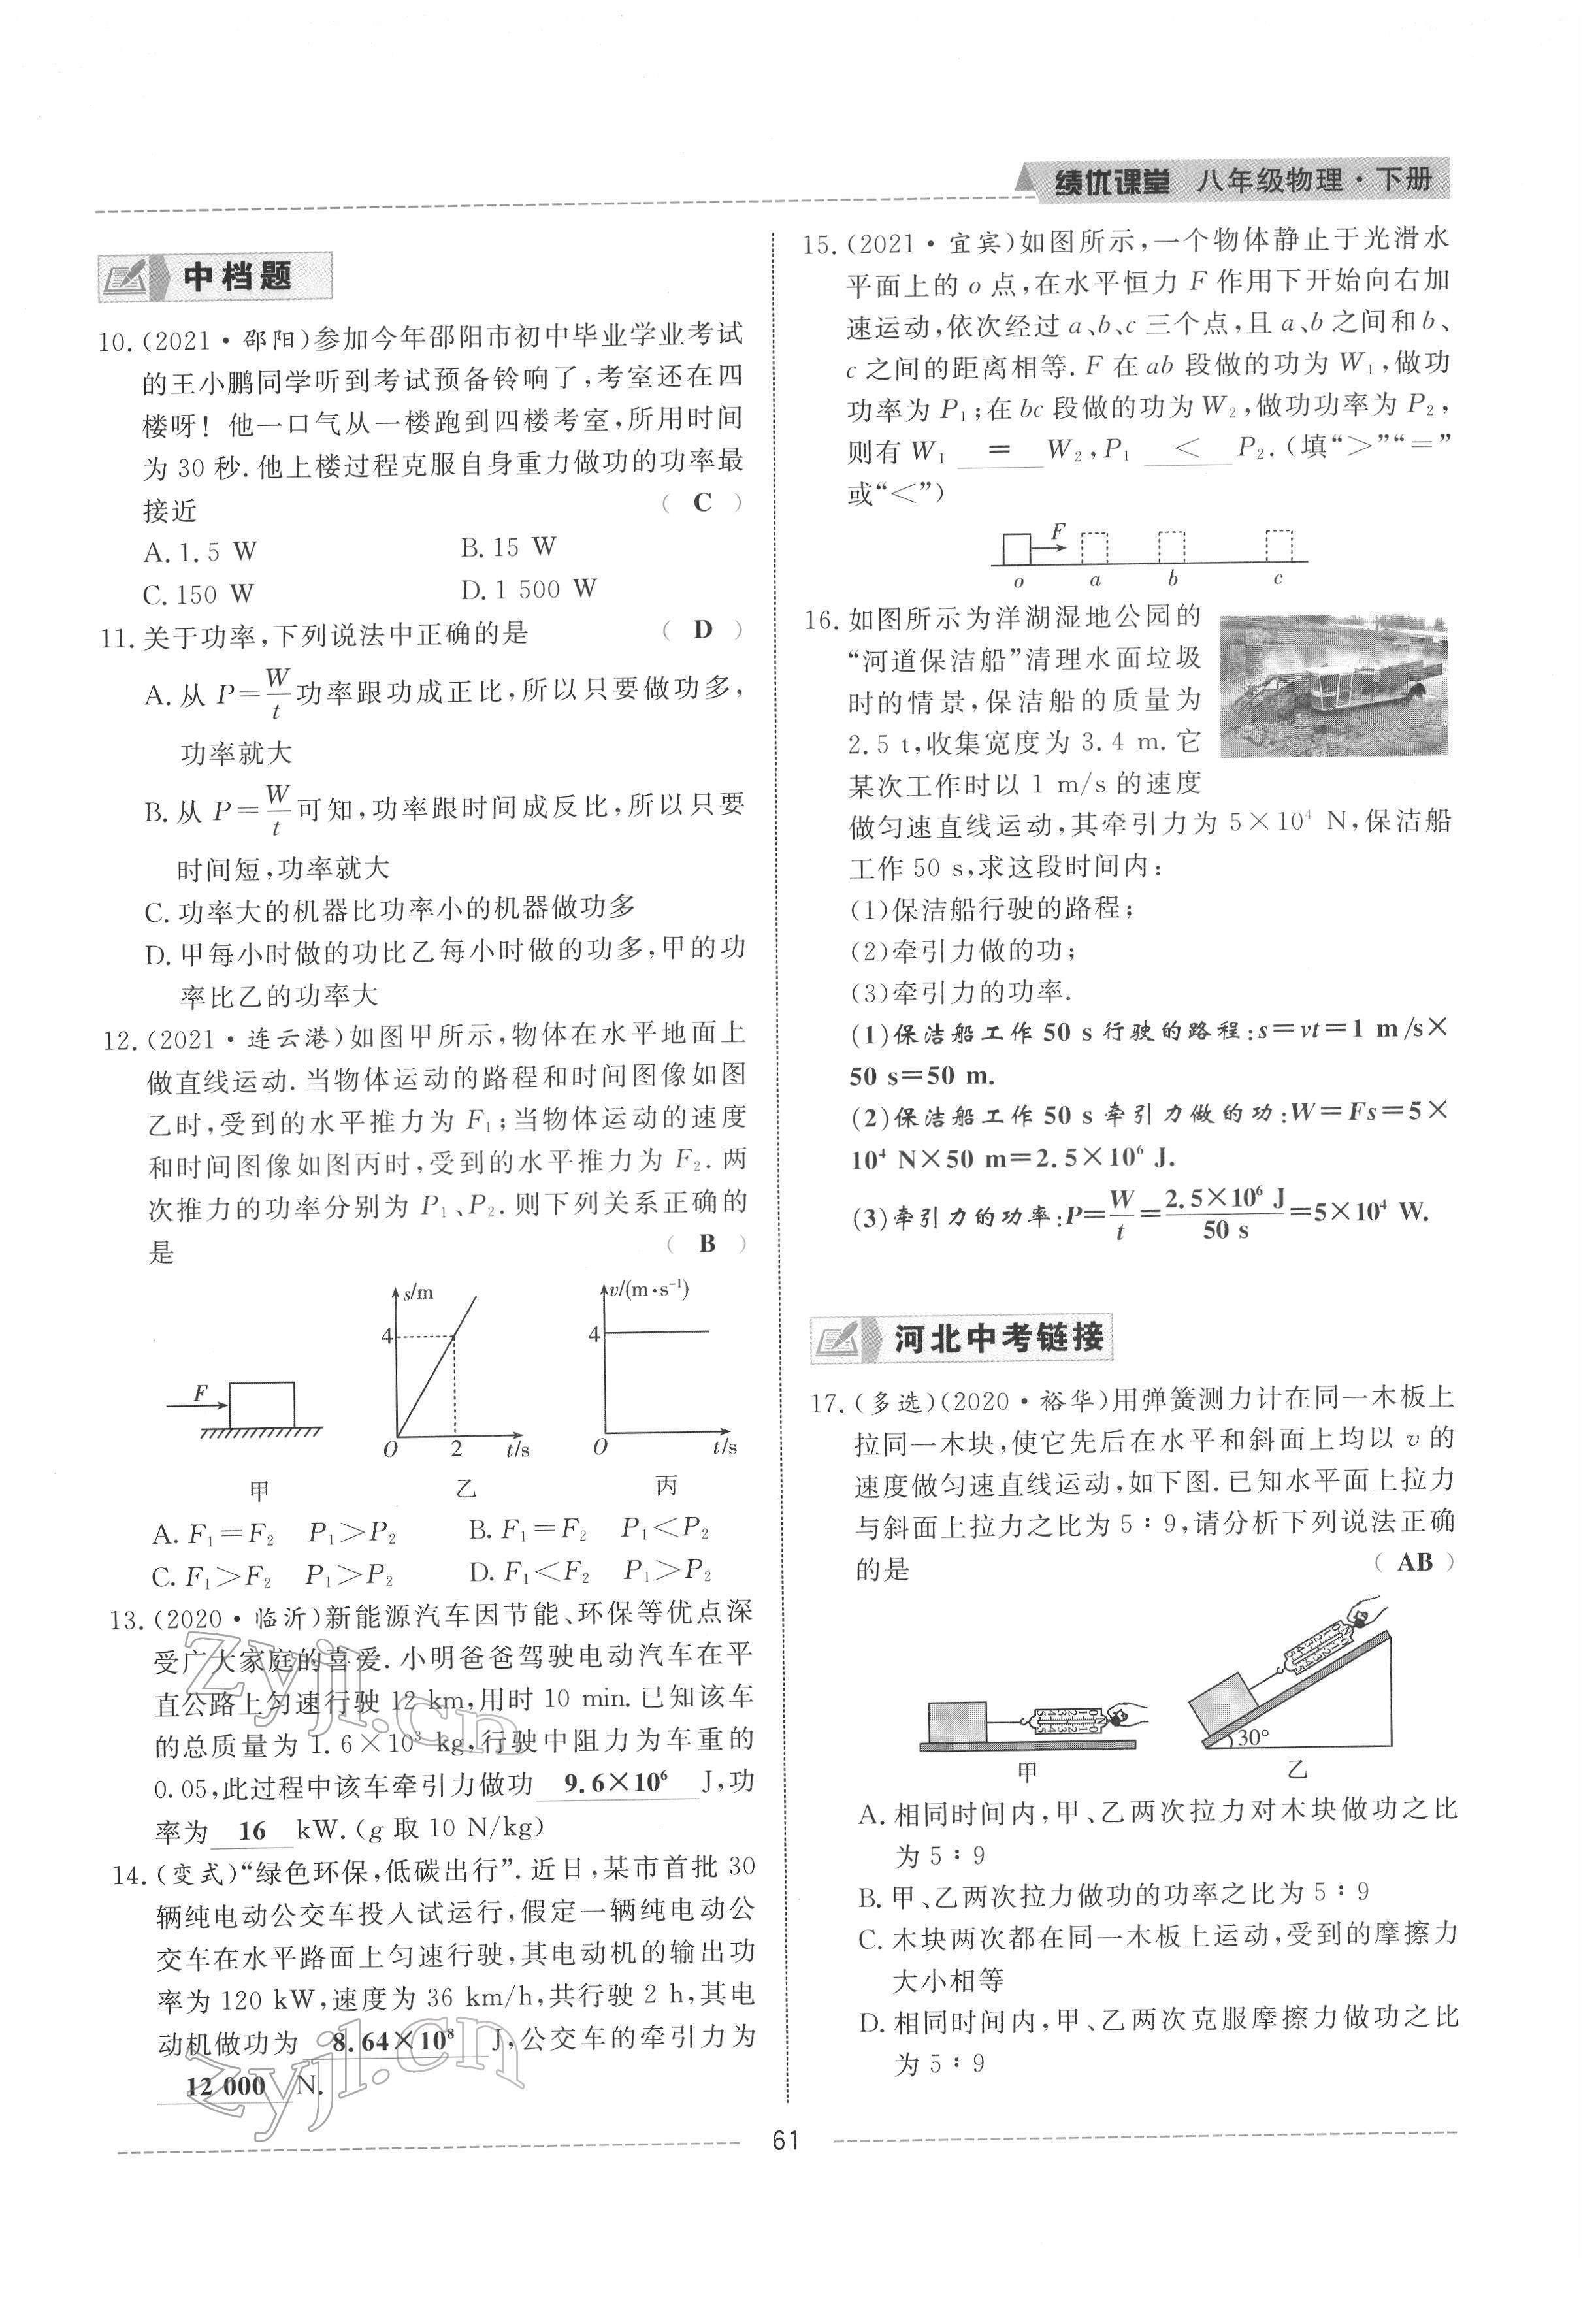 绩优课堂 八年级物理·下册
中档题
10.(2021·邵阳)参加今年邵阳市初中毕业学业考试
的王小鹏同学听到考试预备铃响了,考室还在四
楼呀!他一口气从一楼跑到四楼考室,所用时间
为30秒.他上楼过程克服自身重力做功的功率最
接近 ( C )
A.1.5 W B.15 W
C.150 W D.1 500 W
11.关于功率,下列说法中正确的是 ( D )
A.从 P=W/t功率跟功成正比,所以只要做功多,
功率就大
B.从 P=W/t可知,功率跟时间成反比,所以只要
时间短,功率就大
C.功率大的机器比功率小的机器做功多
D.甲每小时做的功比乙每小时做的功多,甲的功
率比乙的功率大
12.(2021·连云港)如图甲所示,物体在水平地面上
做直线运动.当物体运动的路程和时间图像如图
乙时,受到的水平推力为F₁;当物体运动的速度
和时间图像如图丙时,受到的水平推力为F₂.两
次推力的功率分别为 P₁、P₂.则下列关系正确的
是 ( B )
F
甲
s/m
4
O 2 t/s
乙
v/(m·s⁻¹)
4
O t/s
丙
A.F₁=F₂ P₁>P₂ B.F₁=F₂ P₁<P₂
C.F₁>F₂ P₁>P₂ D.F₁<F₂ P₁>P₂
13.(2020·临沂)新能源汽车因节能、环保等优点深
受广大家庭的喜爱.小明爸爸驾驶电动汽车在平
直公路上匀速行驶12 km,用时10 min.已知该车
的总质量为1.6×10³ kg,行驶中阻力为车重的
0.05,此过程中该车牵引力做功 9.6×10⁶ J,功
率为 16 kW.(g取10 N/kg)
14.(变式)“绿色环保,低碳出行”.近日,某市首批30
辆纯电动公交车投入试运行,假定一辆纯电动公
交车在水平路面上匀速行驶,其电动机的输出功
率为120 kW,速度为36 km/h,共行驶2 h,其电
动机做功为 8.64×10⁸ J,公交车的牵引力为
12 000 N.
zyjl.cn
zyjl.cn
15.(2021·宜宾)如图所示,一个物体静止于光滑水
平面上的o点,在水平恒力F作用下开始向右加
速运动,依次经过a、b、c三个点,且a、b之间和b、
c之间的距离相等.F在ab段做的功为W₁,做功
功率为P₁;在bc段做的功为W₂,做功功率为P₂,
则有W₁ = W₂,P₁ < P₂.(填“>”“=”
或“<”)
F
o a b c
16.如图所示为洋湖湿地公园的
“河道保洁船”清理水面垃圾
时的情景,保洁船的质量为
2.5 t,收集宽度为3.4 m.它
某次工作时以1 m/s的速度
做匀速直线运动,其牵引力为5×10⁴ N,保洁船
工作50 s,求这段时间内:
(1)保洁船行驶的路程;
(2)牵引力做的功;
(3)牵引力的功率.
(1)保洁船工作50 s行驶的路程:s=vt=1 m/s×
50 s=50 m.
(2)保洁船工作50 s牵引力做的功:W=Fs=5×
10⁴ N×50 m=2.5×10⁶ J.
(3)牵引力的功率:P=W/t=2.5×10⁶ J/50 s=5×10⁴ W.
河北中考链接
17.(多选)(2020·裕华)用弹簧测力计在同一木板上
拉同一木块,使它先后在水平和斜面上均以v的
速度做匀速直线运动,如下图.已知水平面上拉力
与斜面上拉力之比为5∶9,请分析下列说法正确
的是 ( AB )
甲
30°
乙
A.相同时间内,甲、乙两次拉力对木块做功之比
为5∶9
B.甲、乙两次拉力做功的功率之比为5∶9
C.木块两次都在同一木板上运动,受到的摩擦力
大小相等
D.相同时间内,甲、乙两次克服摩擦力做功之比
为5∶9
61